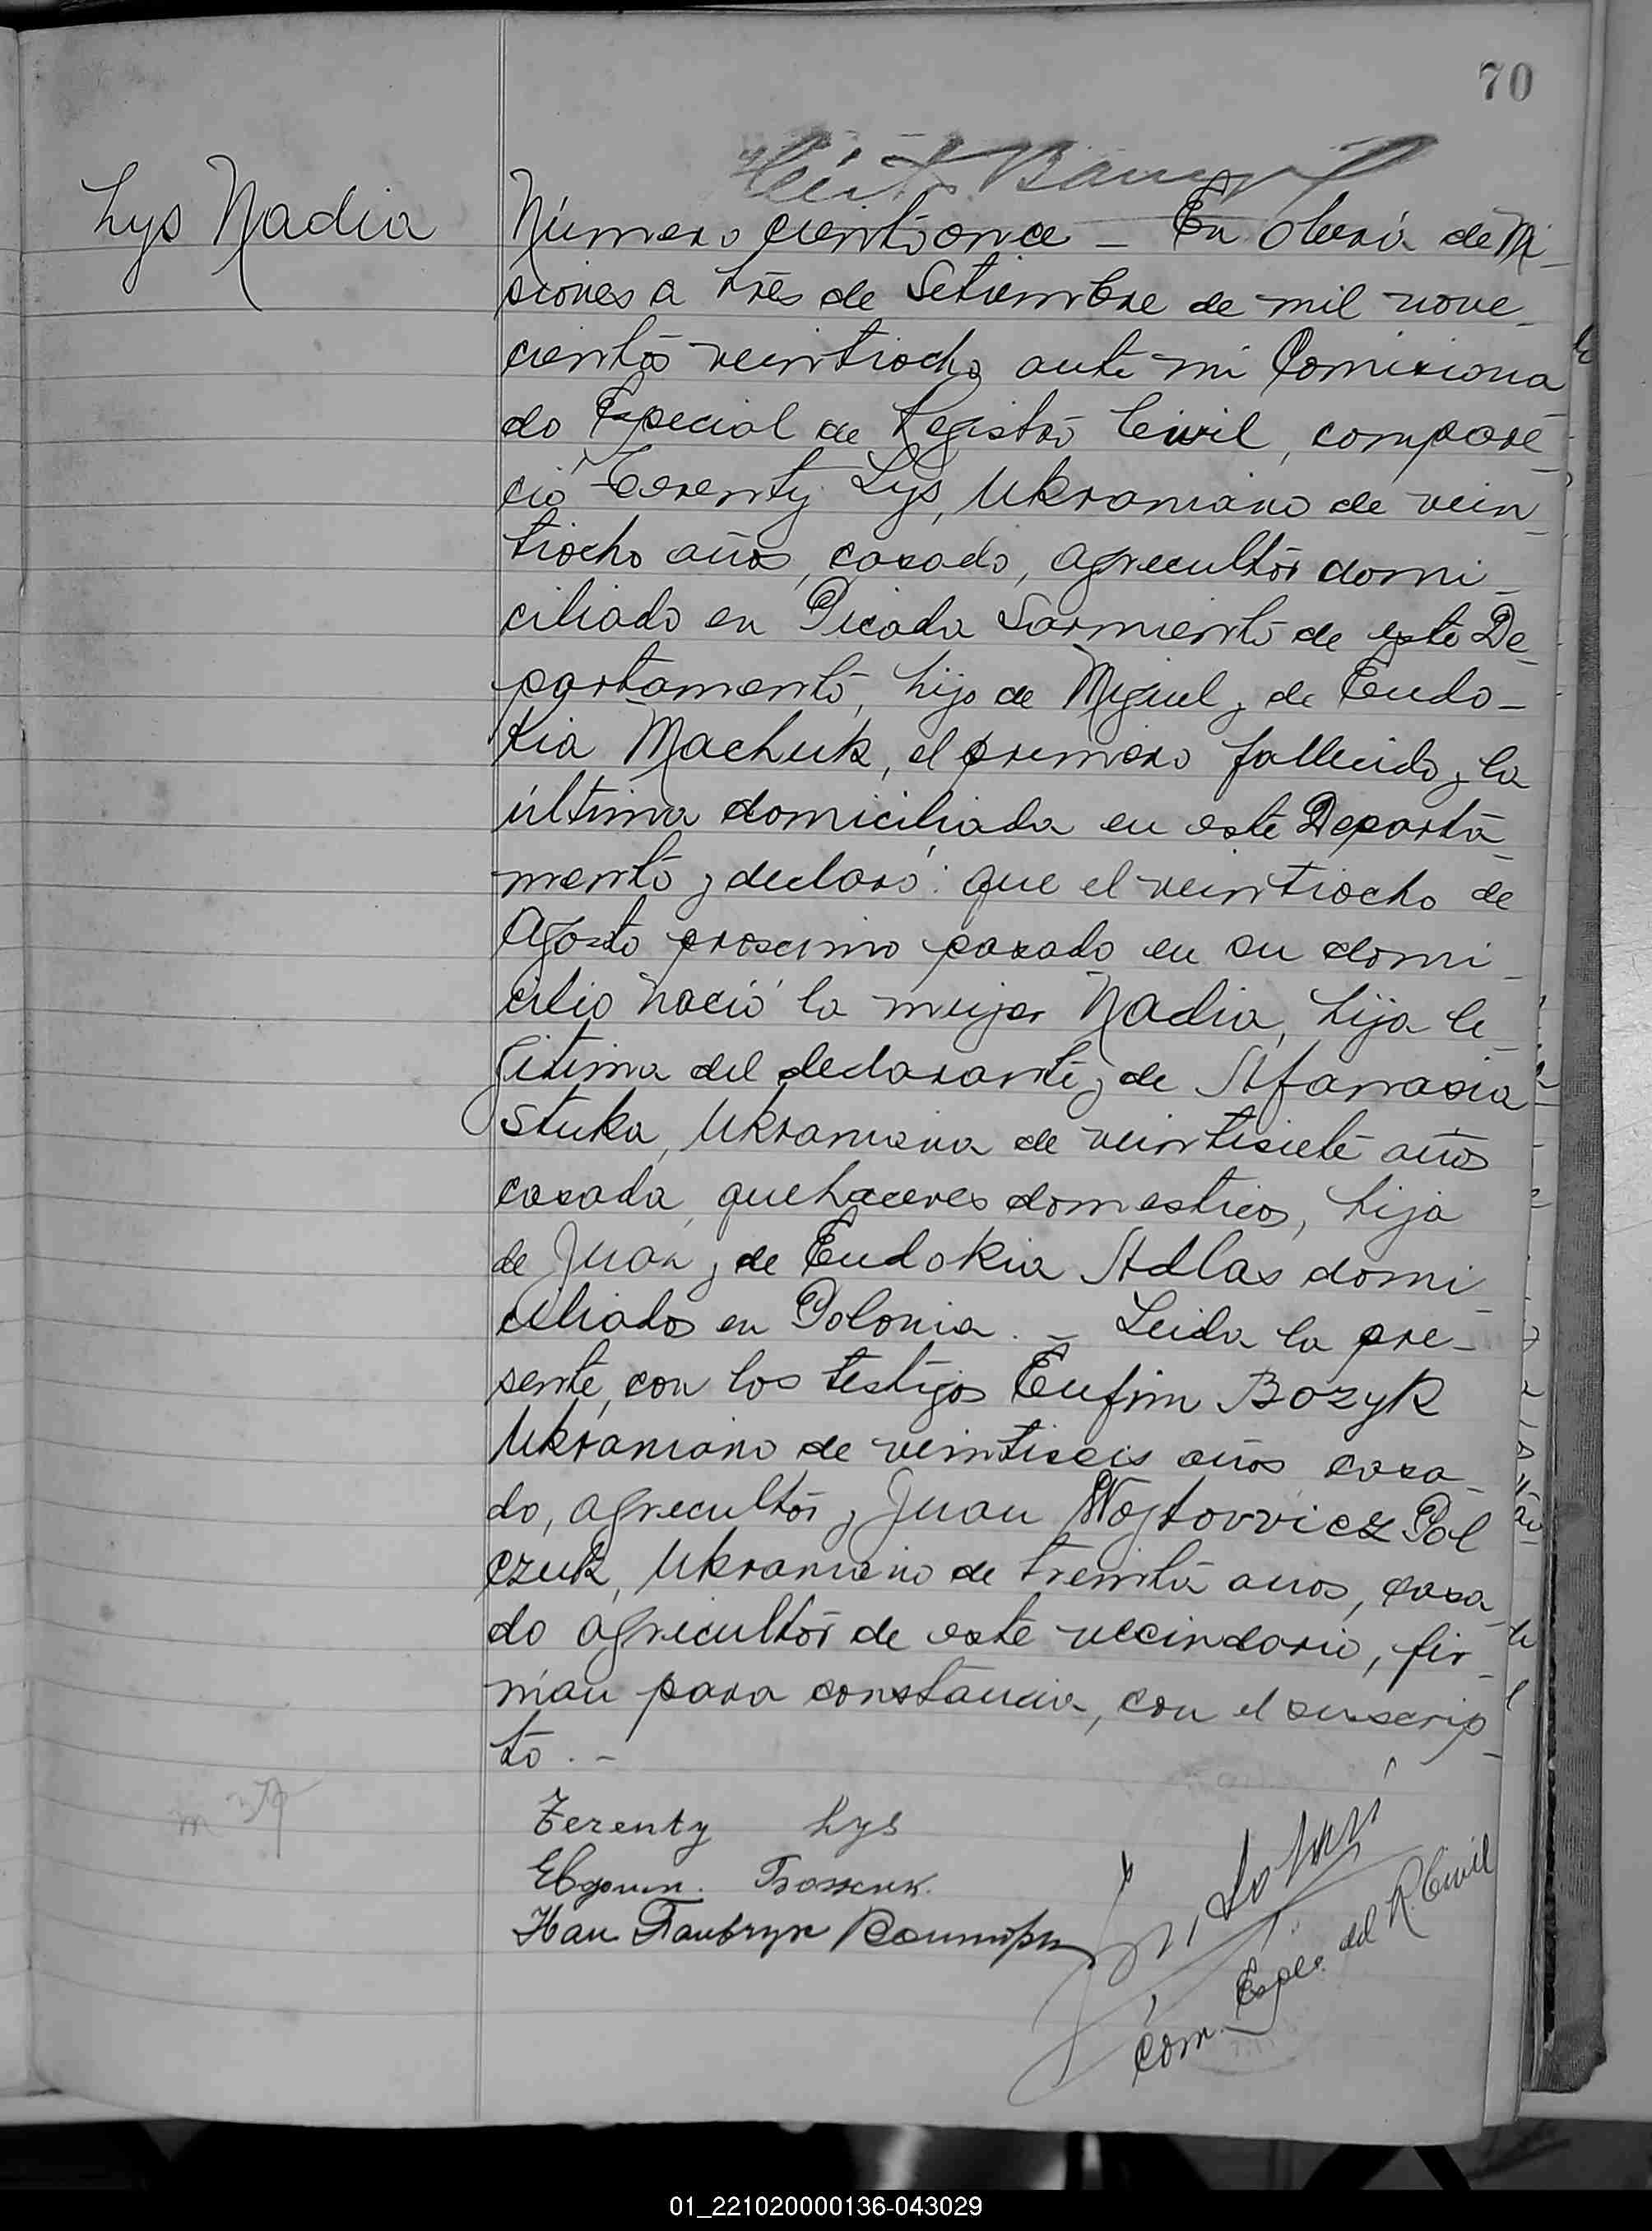 70
Lys Nadia
Número cientoonce – En Oberá de Mi-
siones a tres de Setiembre de mil nove-
cientos veintiocho ante mi Comisiona
do Especial de Registro Civil, compare-
ció Terenty Lys, Ukraniano de vein-
tiocho años, casado, agrecultor domi-
ciliado en Picada Sarmiento de este De-
partamento, hijo de Miguel y de Eudo-
kia Machuk, el primero fallecido y la
última domiciliada en este Departa-
mento y declaró: que el veintiocho de
Agosto proscimo pasado en su domi-
cilio nació la mujer Nadia, hija le-
gitima del declarante y de Afanasia
Stuka, Ukraniana de veintisiete años
casada, quehaceres domesticos, hija
de Juan y de Eudokia Adlas domi-
ciliados en Polonia. – Leida la pre-
sente, con los testigos Eufim Bozyk
Ukraniano de veintiseis años casa-
do, agrecultor y Juan Wojtovvicz Pal
czuk, Ukraniano de treinta años, casa-
do agricultor de este vecindario, fir-
man para constancia, con el suscrip-
to. –
Terenty Lys
Com. Espec. del R. Civil
01_221020000136-043029